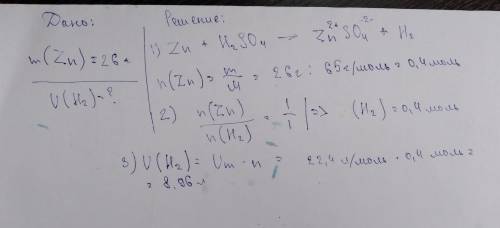 Дано:
m(Zn) = 26 г
V(H₂) - ?
Решение:
1) Zn + H₂SO₄ → Zn²⁺SO₄²⁻ + H₂
n(Zn) = m/M = 26г : 65 г/моль = 0,4 моль
2) n(Zn)/n(H₂) = 1/1 |=> (H₂) = 0,4 моль
3) V(H₂) = Vm · n = 22,4 л/моль · 0,4 моль =
= 8,96 л